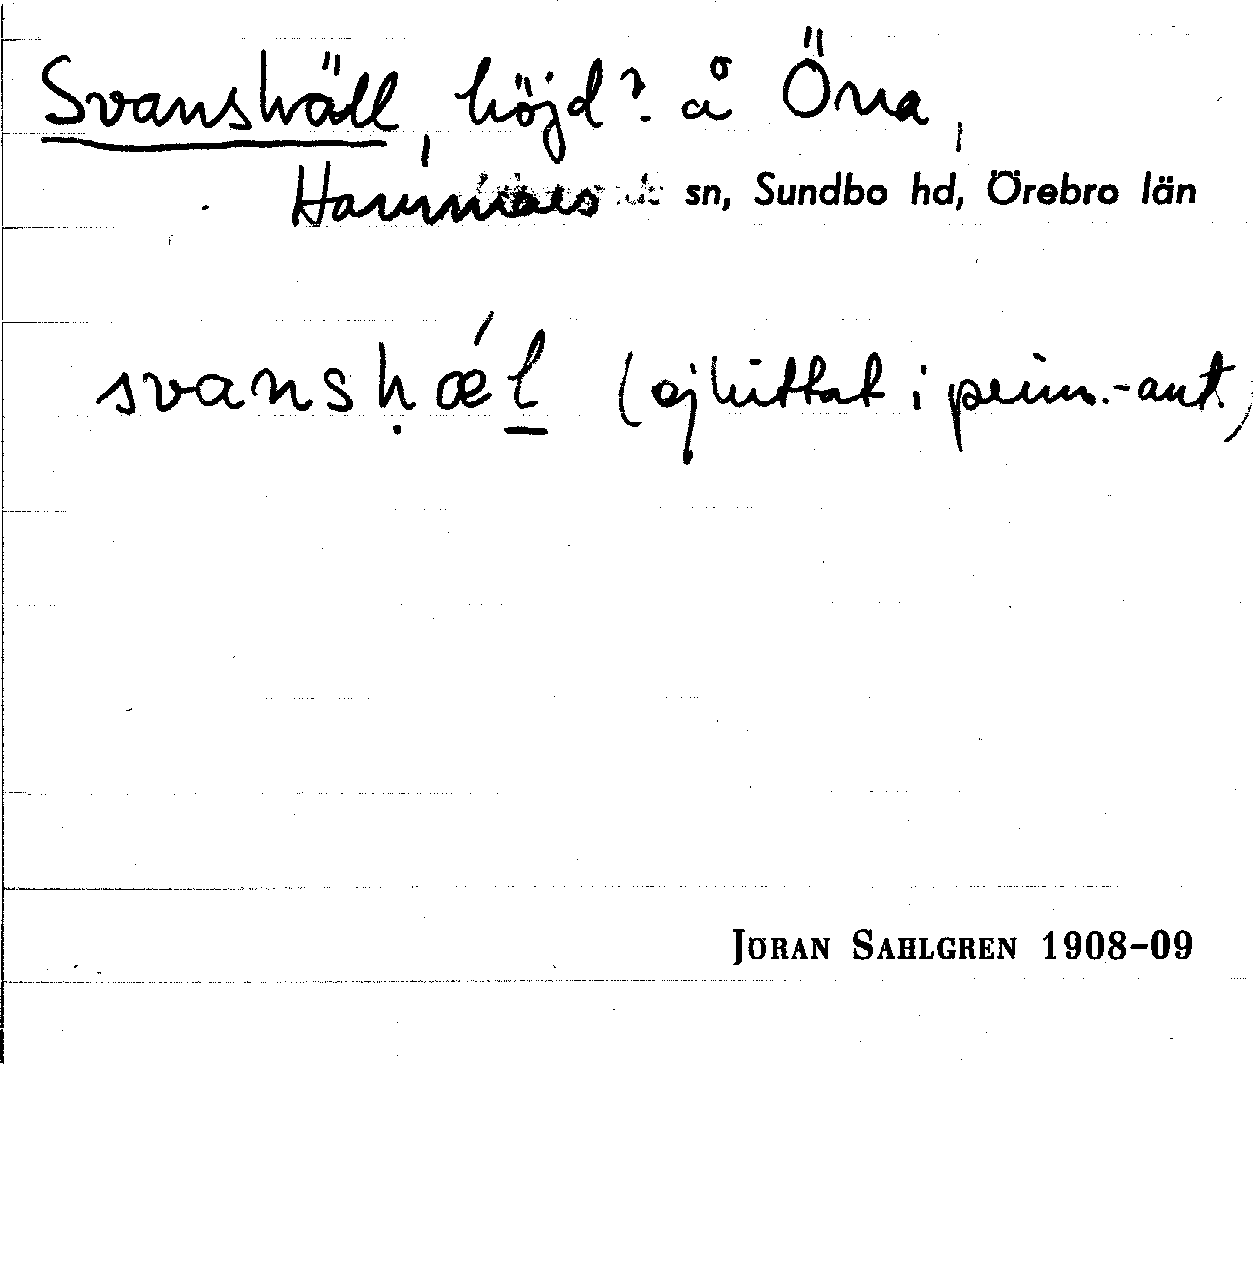 Svanshäll, höjd? å Öna,
Hammars sn, Sundbo hd, Örebro län
svansḥǽl̲ (ej hittat i prim.-ant.)
JÖRAN SAHLGREN 1908-09